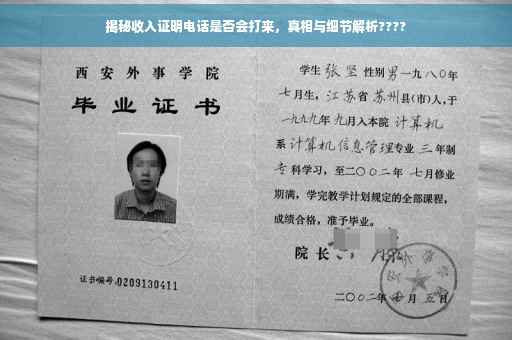 揭秘收入证明电话是否会打来，真相与细节解析????
西安外事学院
毕业证书
证书编号:0209130411
学生 张坚 性别男 一九八〇年
七月生，江苏省苏州县(市)人，于
一九九九年九月入本院 计算机
系 计算机信息管理专业 三年制
专科学习，至二〇〇二年 七月修业
期满，学完教学计划规定的全部课程，
成绩合格，准予毕业。
院长
二〇〇二年 月五日